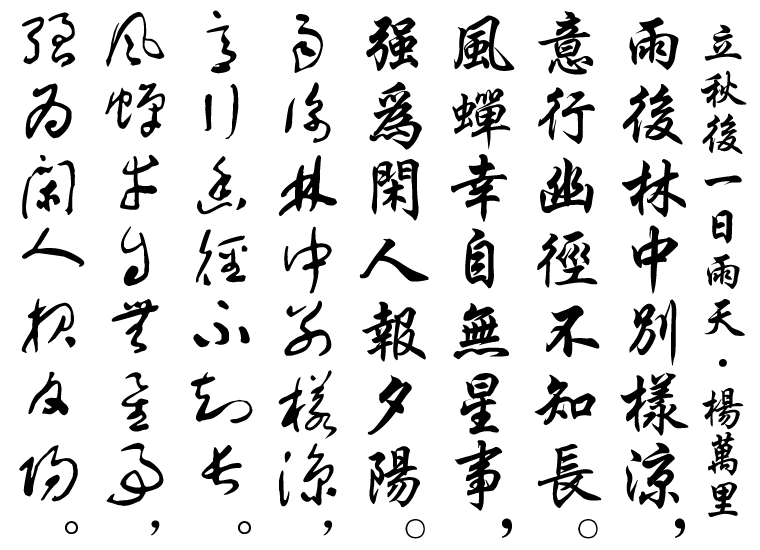 立秋後一日雨天・楊萬里
雨後林中別樣涼，
意行幽徑不知長。
風蟬幸自無星事，
强爲閑人報夕陽。
雨後林中別樣涼，
意行幽徑不知長。
風蟬幸自無星事，
强爲閑人報夕陽。